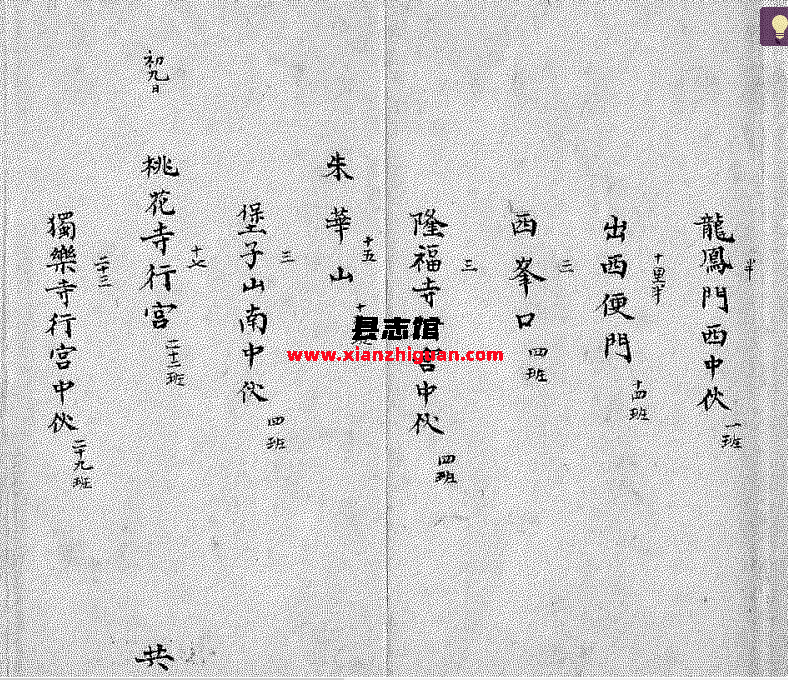 半
龍鳳門西中伙
一班
十里半
出西便門
十四班
三
西峯口
四班
三
隆福寺
宮中伙
四班
十五
朱華山
三
堡子山南中伙
四班
初九日
十七
桃花寺行宮
二十二班
共
二十三
獨樂寺行宮中伙
二十九班
县志馆
www.xianzhiguan.com